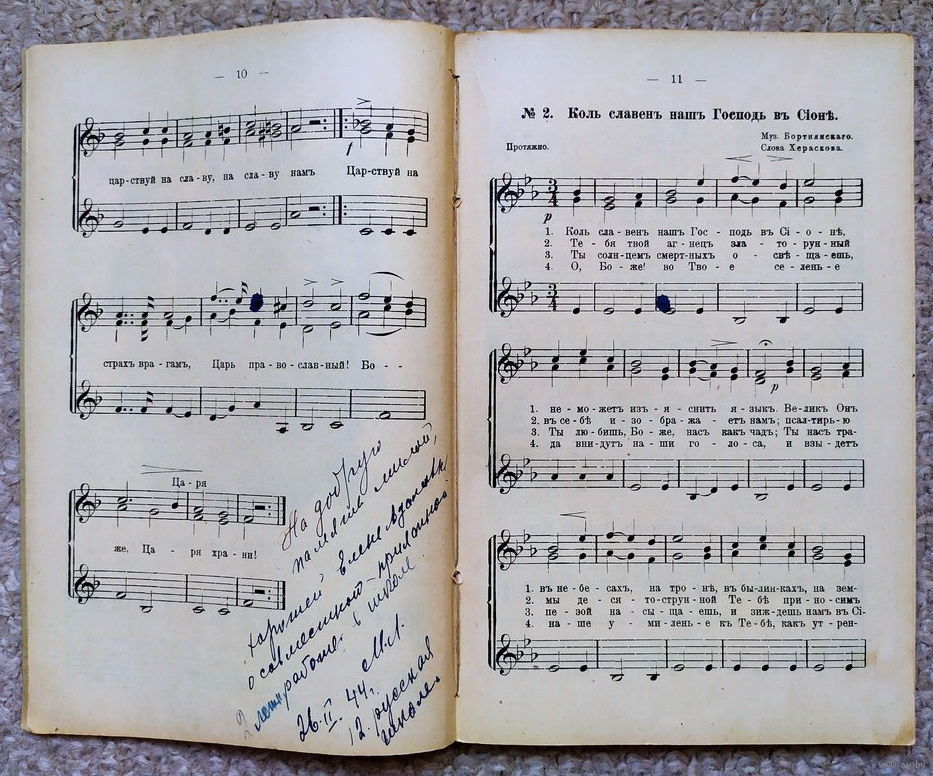 — 10 —
цар-ствуй на сла-ву, на сла-ву намъ Цар-ствуй на
страхъ вра-гамъ, Царь пра-во-слав-ный! Бо - -
Ца-ря
же, Ца - ря хра-ни!
На добрую
память милой,
хорошей Елене
о совместной приятной
2 летн. работе в школе
26.II.44 г. М.Л.
12. русская
школа.
— 11 —
№ 2. Коль славенъ нашъ Господь въ Сіонѣ.
Муз. Бортнянскаго.
Протяжно.
Слова Хераскова.
p
1. Коль сла-венъ нашъ Гос-подь въ Сі-о-нѣ,
2. Те-бя твой аг-нецъ зла-то-рун-ный
3. Ты солн-цемъ смерт-ныхъ о-свѣ-ща-ешь,
4. О, Бо-же! во Тво-е се-лень-е
p
1. не-мо-жетъ изъ-я-снить я-зык. Ве-ликъ Онъ
2. въ се-бѣ и зо-бра-жа-етъ намъ; псал-тирь-ю
3. Ты лю-бишь, Бо-же, насъ какъ чадъ; Ты насъ тра-
4. да внидутъ на-ши го-ло-са, и взы-детъ
1. въ не-бе-сахъ, на тро-нѣ, въ бы-лин-кахъ, на зем-
2. мы де-ся-то-струн-ной Те-бѣ при-но-симъ
3. пе-зой на-сы-ща-ешь, и зиж-дешь намъ въ Сі-
4. на-ше у-ми-лень-е къ Тебѣ, какъ ут-рен-